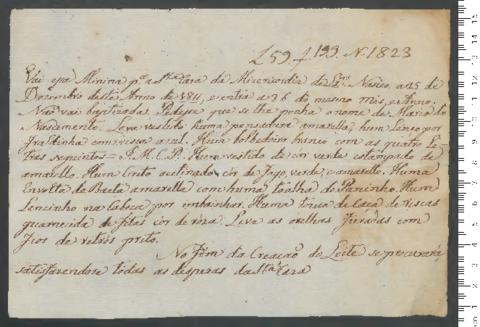 L 59 f 199. N 1823
Vai esta Minina pª a Stª Caza da Mizericordia de Lxª. Nasceo, a 25 de
Dezembro deste Anno de 1811, e entra a 26 do mesmo mes, e Anno.
Naõ vai baptizada. Pedese que se lhe ponha o nome de Maria do
Nascimento. Leva vestido huma camiza amarella; hum lenço por
fraldinha com risca azul. Hum
branco com as quatro le-
tras seguintes = J. M. C. P. Hum vestido de cor verde estampado de
amarello. Hum Cinto
cor de fogo, verde e amarello. Huma
Envolta de Baeta amarella com huma toalha de Paninho. Hum
Lencinho na Cabeça por
Huma touca de Caça de riscas
guarnecida de fitas Cor de roza. Leva as orelhas furadas com
fios de retrós preto.
No fim da Creaçaõ do Leite se procurará,
satisfazendose todas as despezas da Stª Caza